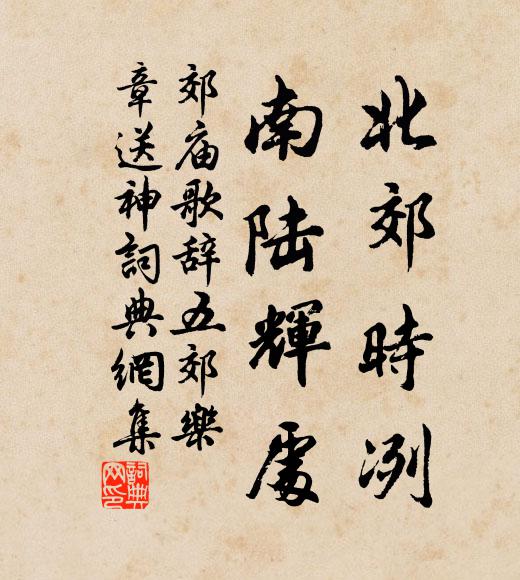 北郊時冽
南陆輝處
郊庙歌辞五郊樂
章送神詞典網集
詞典
网印